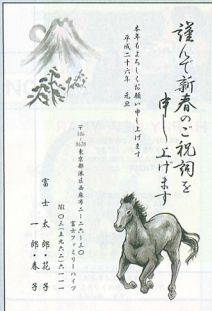 謹んで新春のご祝詞を
申し上げます
本年もよろしくお願い申し上げます
平成二十六年 元旦
〒106-8620
東京都港区西麻布二-二六-三〇
富士ファミリーハイツ
℡ 〇三(五九六二)六一一一
富士 太郎・花子
一郎・春子